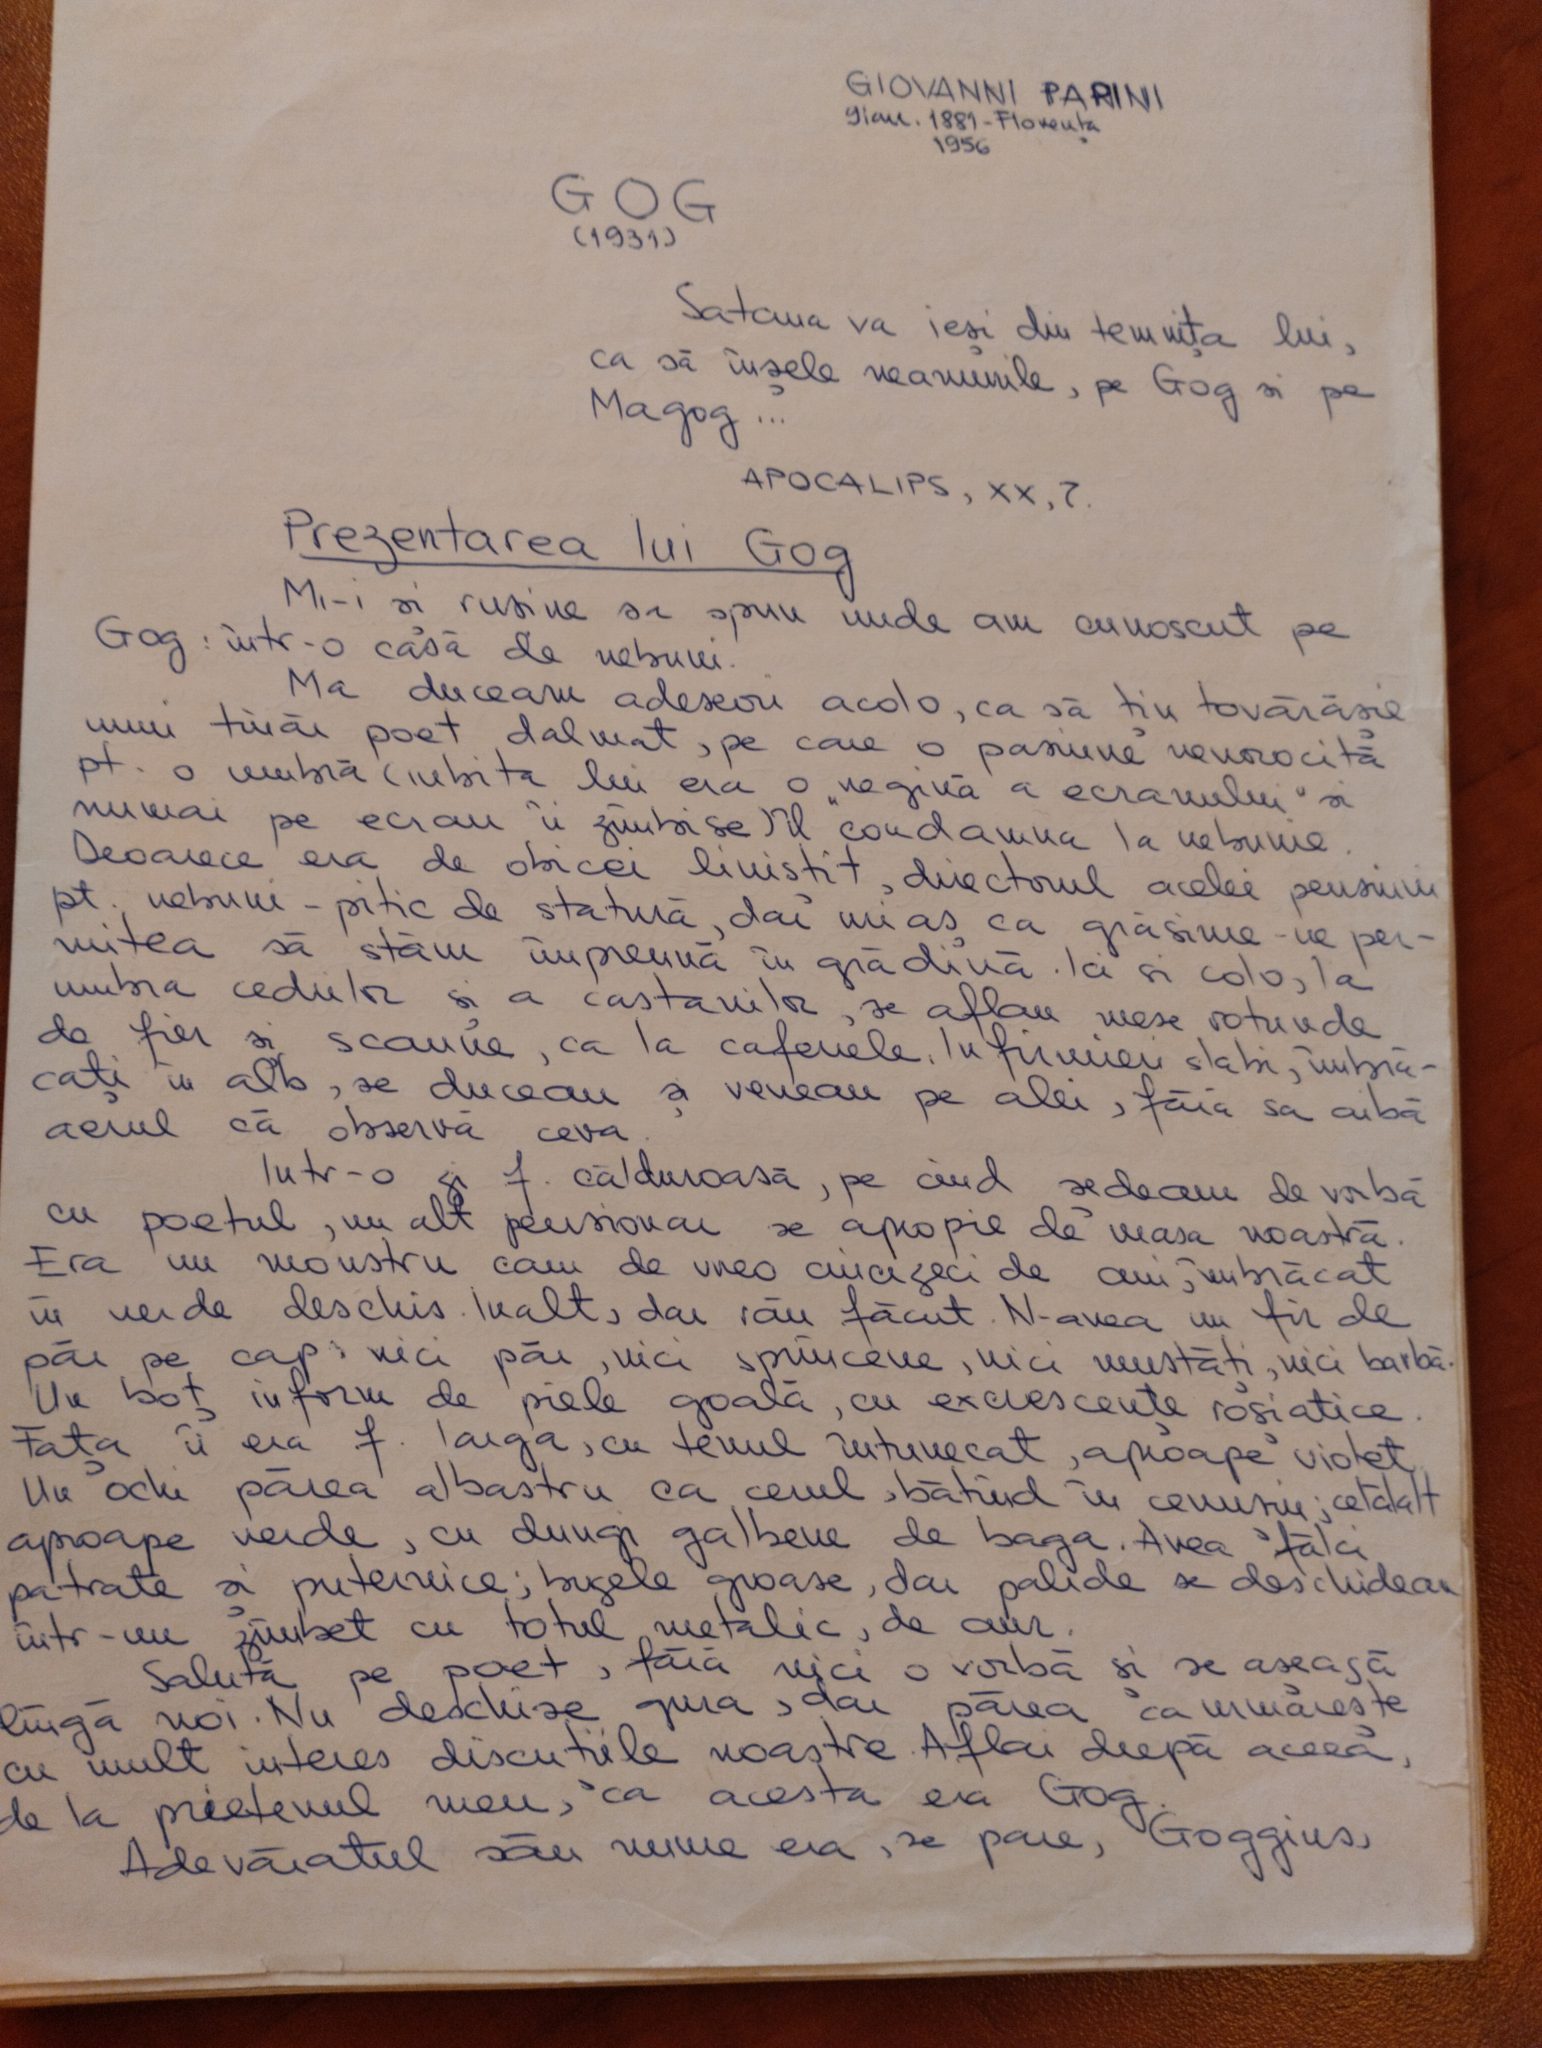 GIOVANNI PAPINI
9 ian. 1881 - Florența
1956
GOG
(1931)
Satana va ieși din temnița lui,
ca să înșele neamurile, pe Gog si pe
Magog...
APOCALIPS, XX, 7.
Prezentarea lui Gog
Mi-i si rusine sa spun unde am cunoscut pe
Gog: într-o casă de nebuni.
Ma duceam adeseori acolo, ca să tin tovărășie
unui tînăr poet dalmat, pe care o pasiune nenorocită
pt. o umbră (iubita lui era o "regină a ecranului" si
numai pe ecran îi zîmbise) îl condamna la nebunie.
Deoarece era de obicei linistit, directorul acelei pensiuni
pt. nebuni - pitic de statură, dar urias ca grăsime - ne per-
mitea să stăm împreună în grădină. Ici si colo, la
umbra cedrilor și a castanilor, se aflau mese rotunde
de fier si scaune, ca la cafenele. Infirmieri slabi, îmbră-
cați în alb, se duceau și veneau pe alei, fără sa aibă
aerul că observă ceva.
Intr-o zi f. călduroasă, pe cînd sedeam de vorbă
cu poetul, un alt pensionar se apropie de masa noastră.
Era un monstru cam de vreo cincizeci de ani, îmbrăcat
în verde deschis. Inalt, dar rău făcut. N-avea un fir de
păr pe cap: nici păr, nici sprîncene, nici mustăți, nici barbă.
Un boț inform de piele goală, cu excrescențe roșiatice.
Fața îi era f. larga, cu tenul întunecat, aproape violet.
Un ochi părea albastru ca cerul, bătînd în cenusiu; celălalt
aproape verde, cu dungi galbene de baga. Avea fălci
patrate si puternice; buzele groase, dar palide se deschideau
într-un zîmbet cu totul metalic, de aur.
Salută pe poet, fără nici o vorbă și se asează
lîngă noi. Nu deschise gura, dar părea ca urmărește
cu mult interes discuțiile noastre. Aflai după aceea,
de la prietenul meu, ca acesta era Gog.
Adevăratul său nume era, se pare, Goggins,